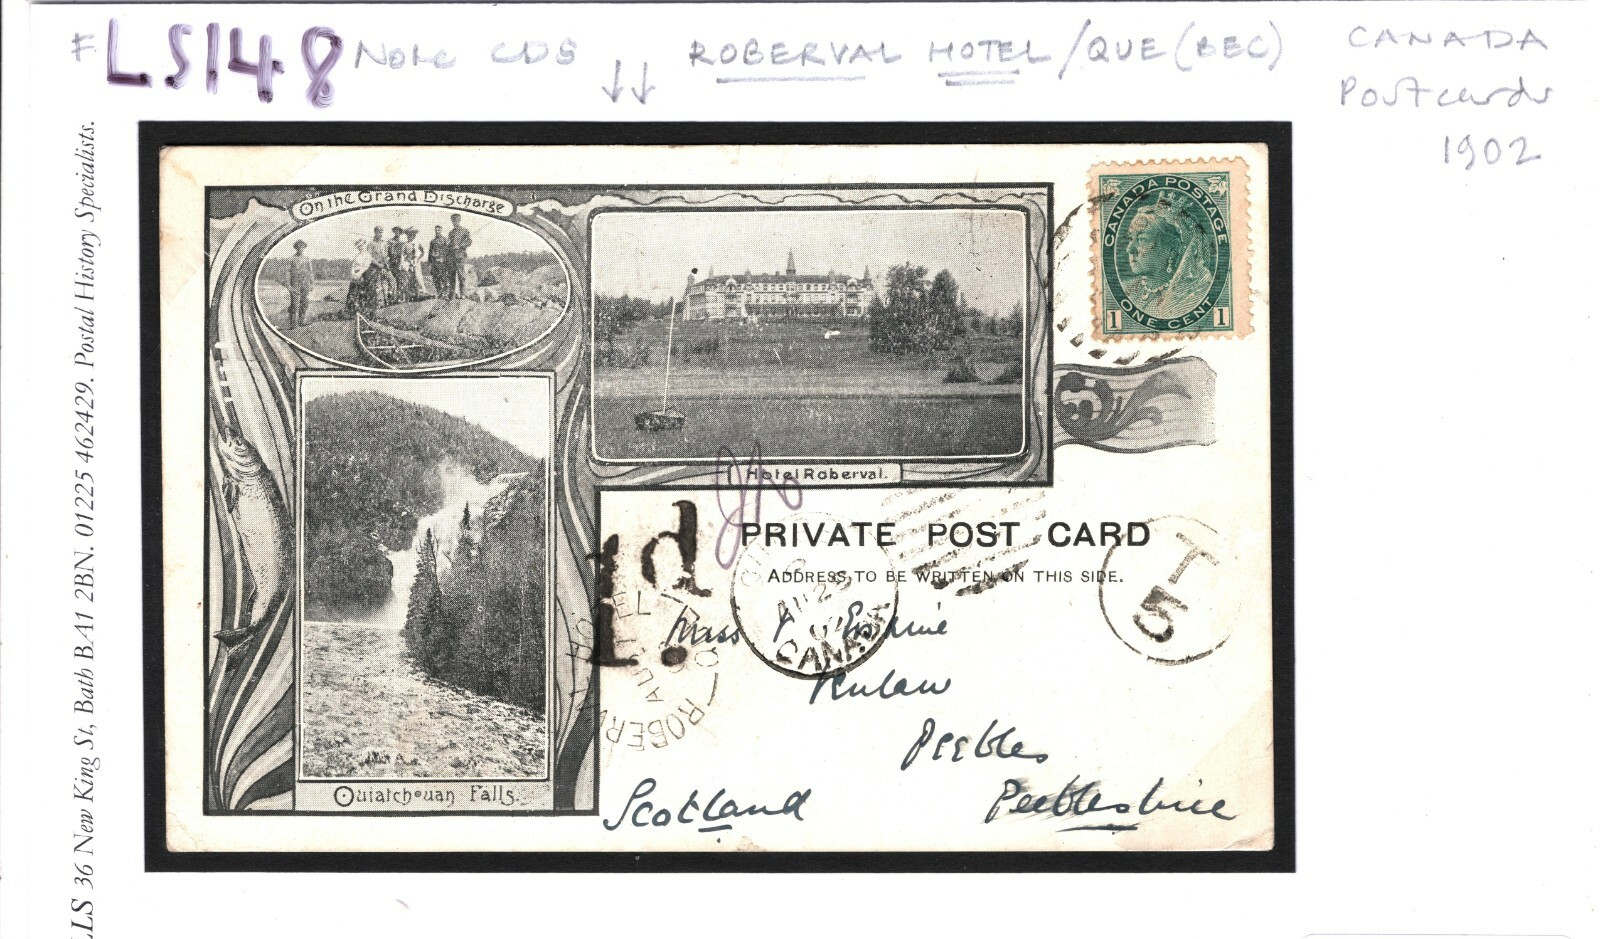 LS148 Note CDS ↓↓ ROBERVAL HOTEL/QUE(BEC)
CANADA
Postcards
1902
LLS 36 New King St, Bath BA1 2BN. 01225 462429. Postal History Specialists.
On the Grand Discharge
Hotel Roberval.
Ouiatchouan Falls.
CANADA POSTAGE
1 ONE CENT 1
1d
PRIVATE POST CARD
ADDRESS TO BE WRITTEN ON THIS SIDE.
T
5
AU 23
CANADA
HOTEL
AU
ROBERVAL
Miss
Peebles
Scotland Peeblesshire